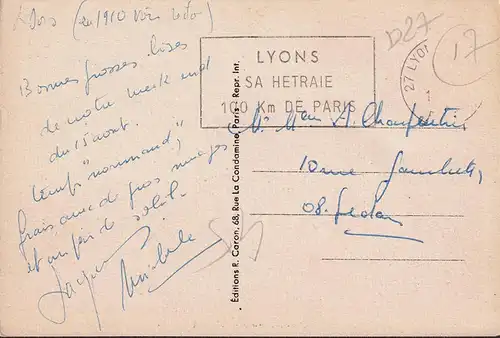 (en 1910 voir
Bonnes grosses bises
de notre week end
du 15 aout.
temps "normand",
frais avec de gros nuages
et un peu de soleil.
Jacques
Michele
LYONS
SA HETRAIE
100 Km DE PARIS
27 LYO
1
D27
17
Mr Mme A. Charpentier
10 rue Gambetta,
08. Sedan
Éditions R. Caron, 68, Rue La Condamine, Paris - Repr. Int.